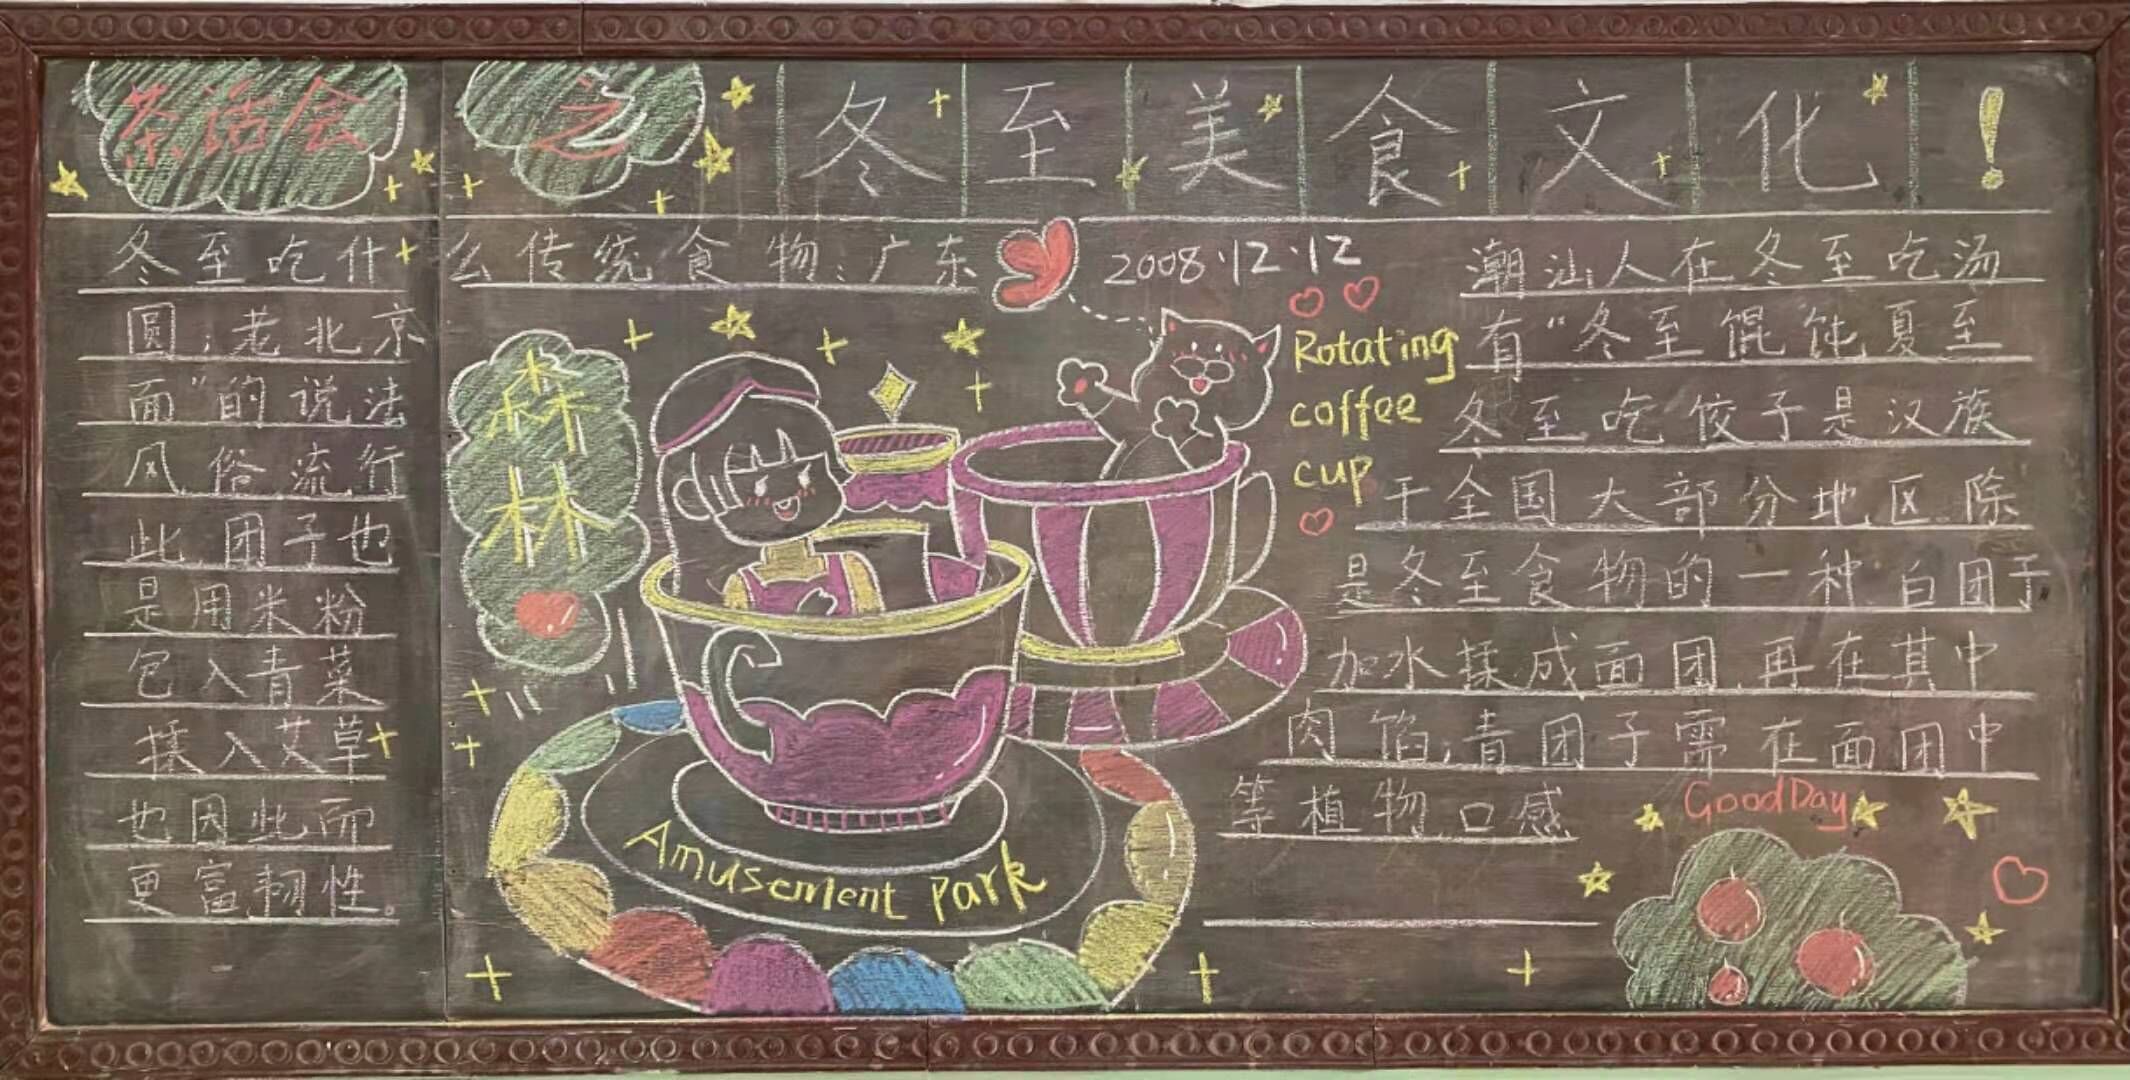 茶话会之冬至美食文化!
冬至吃什么传统食物:广东潮汕人在冬至吃汤
圆,老北京有“冬至馄饨夏至
面”的说法冬至吃饺子是汉族
风俗流行于全国大部分地区除
此团子也是冬至食物的一种白团子
是用米粉加水揉成面团再在其中
包入青菜肉馅,青团子需在面团中
揉入艾草等植物口感
也因此而
更富韧性。
2008.12.12
森林
Rotating
coffee
cup
Amusement park
GoodDay